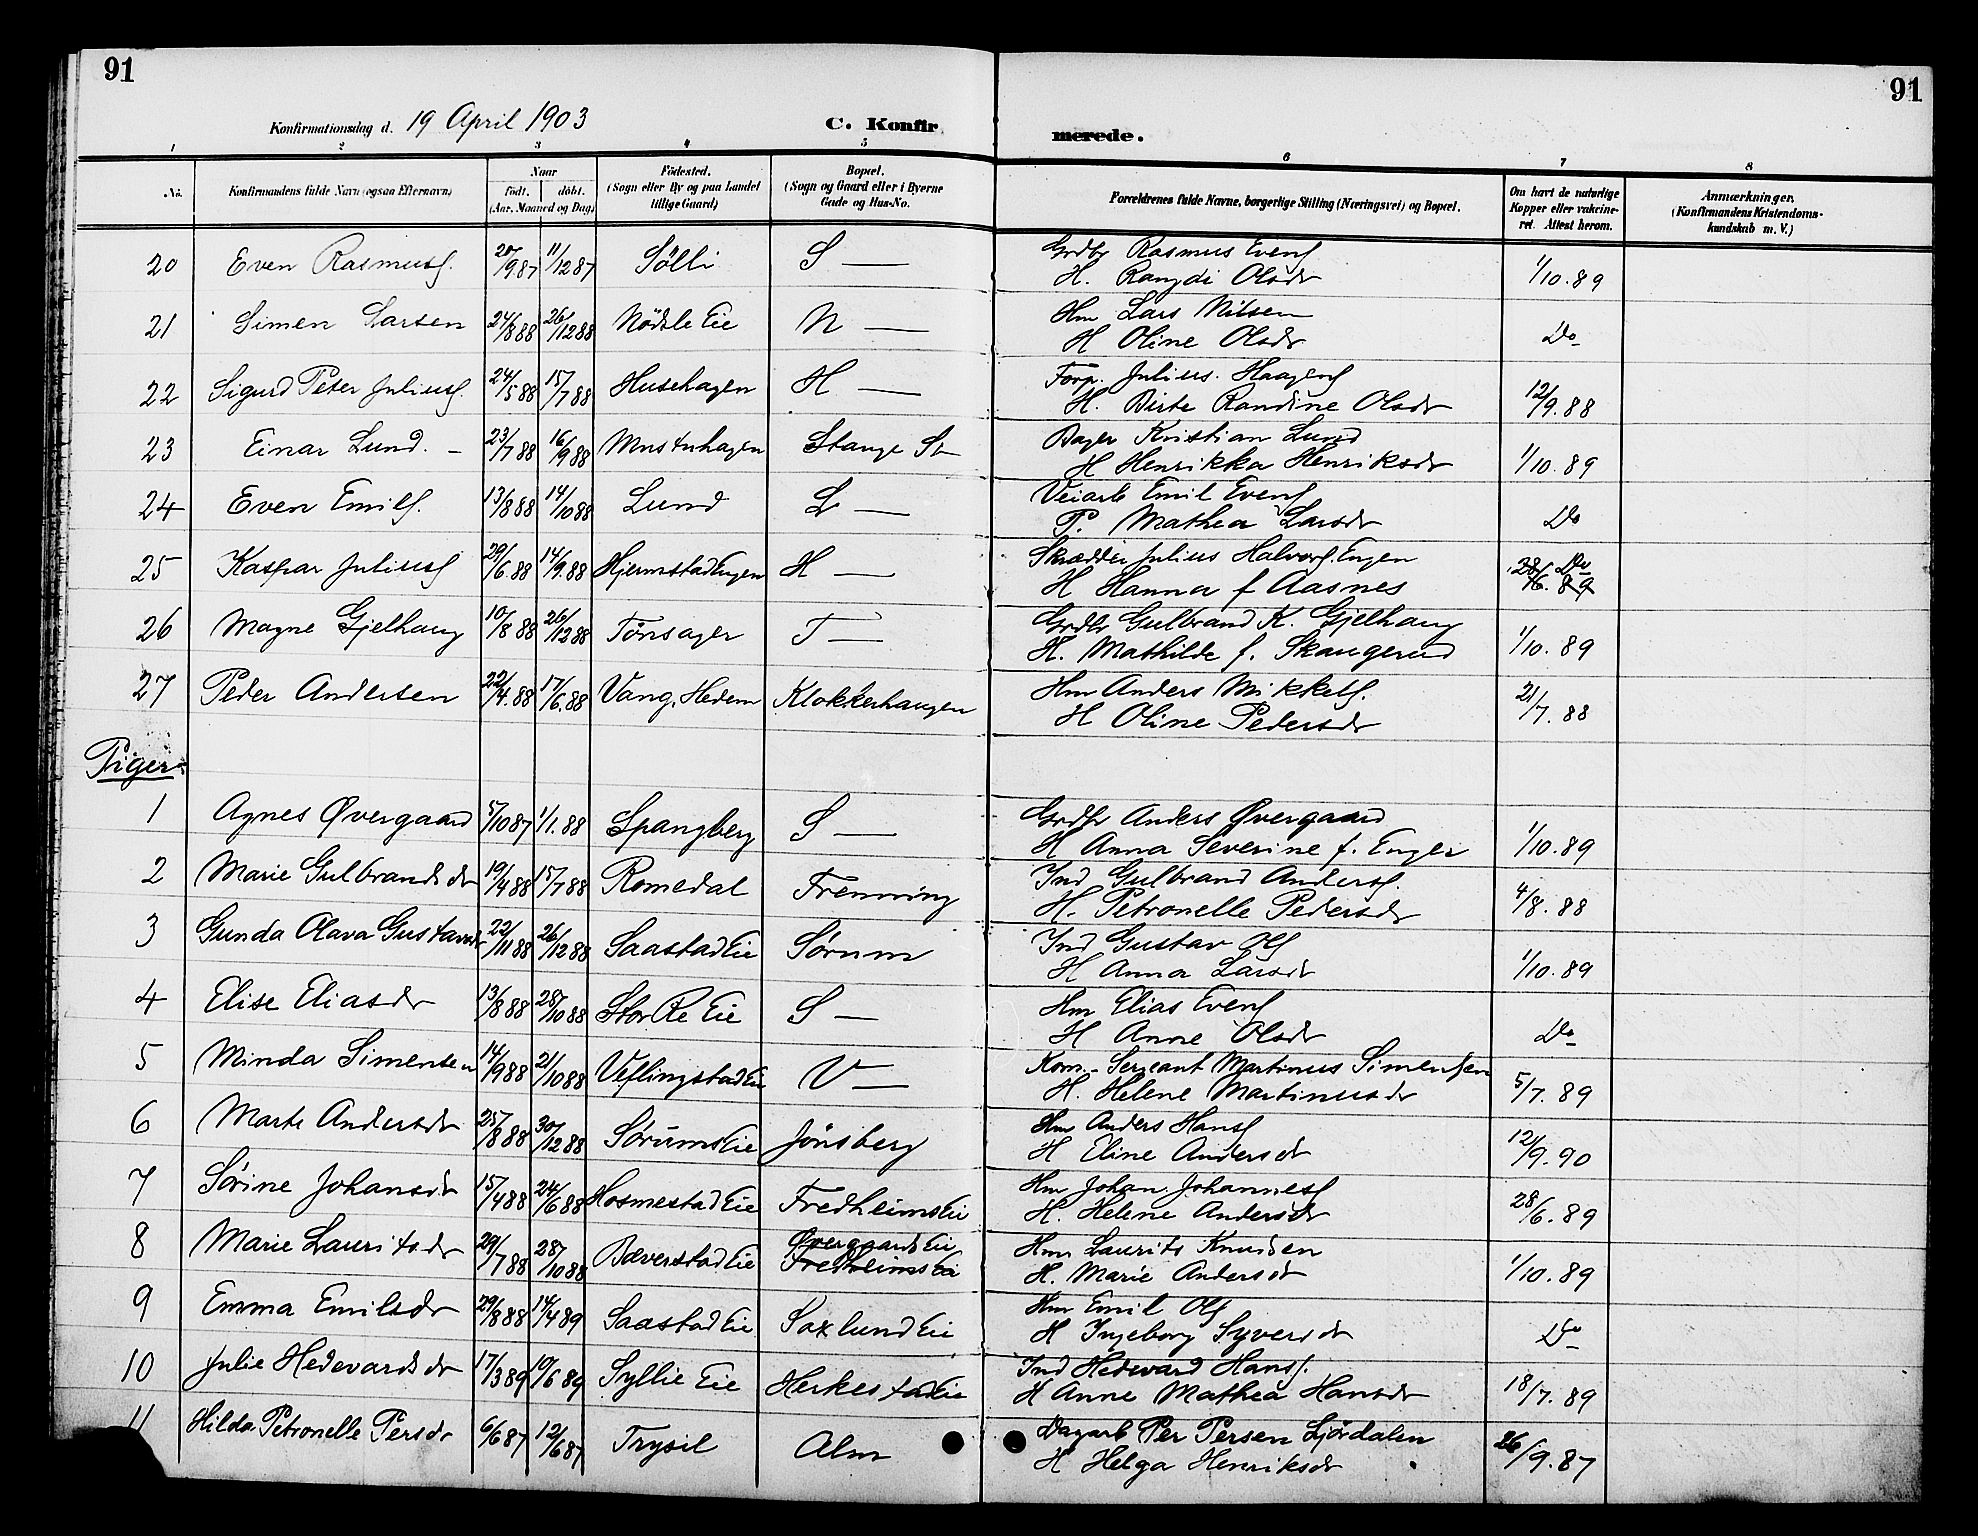 91
91
Konfirmationsdag d. 19 April 1903
C. Konfir
merede.
1 2 3 4 5 6 7 8
No. Konfirmandens fulde Navn (ogsaa Efternavn) Naar födt. döbt. (Aar, Maaned og Dag) Födested. (Sogn eller By og paa Landet tillige Gaard) Bopæl. (Sogn og Gaard eller i Byerne Gade og Hus-No. Forældrenes fulde Navne, borgerlige Stilling (Næringsvei) og Bopæl. Om havt de naturlige Kopper eller vakcineret. Attest herom. Anmærkninger. (Konfirmandens Kristendomskundskab m. V.)
20 Even Rasmuss. 20/9 87 11/12 87 Sölli S — Grdbr Rasmus Evens
H. Rangdi Olsdr 1/10. 89
21 Simen Larsen 24/8 88 26/12 88 Nödsle Eie N — Hm Lars Nilsen
H Oline Olsdr Do
22 Sigurd Peter Juliuss. 24/5 88 15/7 88 Husehagen H — Forp. Julius Haagens
H. Birte Randine Olsdr 12/9. 88
23 Einar Lund. 23/7 88 16/9 88 Stange St Bager Kristian Lund
H Henrikka Henriksdr 1/10. 89
24 Even Emils. 13/8 88 14/10 88 Lund L — Veiarb Emil Evens
P. Mathea Larsdr Do
25 Kaspar Juliuss 29/6. 88 14/9. 88 Hjermstad Engen H — Skrædder Julius Halvors. Engen
H Hanna f Aasnes 28/6. 89 Do
26 Magne Gjelhaug 10/8 88 26/12 88 Tönsager T — Grdbr Gulbrand K. Gjelhaug
H. Mathilde f. Skaugerud 1/10. 89
27 Peder Andersen 22/4. 88 17/6. 88 Vang, Hedem Klokkerhaugen Hm Anders Mikkels.
H Oline Pedersdr 21/7. 88
Piger:
1 Agnes Øvergaard 5/10 87 1/1. 88 Spangberg S — Grdbr Anders Øvergaard
H Anna Severine f. Enger 1/10. 89
2 Marie Gulbrandsdr 19/4 88 15/7 88 Romedal Frenning Ind Gulbrand Anders.
H. Petronelle Pedersdr 4/8. 88
3 Gunda Olava Gustavsdr 22/11 88 26/12 88 Saastad Eie Sörum Ind Gustav Ols
H Anna Larsdr 1/10. 89
4 Elise Eliasdr 13/8 88 28/10 88 Stor Re Eie S — Hm Elias Evens
H Anne Olsdr Do
5 Minda Simensen 14/9 88 21/10 88 Veflingstad Eie V — Kom. Sergeant Martinus Simensen
H. Helene Martinusdr 5/7. 89
6 Marte Andersdr 25/8 88 30/12 88 Sörums Eie Jönsberg Hm Anders Hans
H Eline Andersdr 12/9. 90
7 Sörine Johansdr 15/4 88 24/6 88 Hosmestad Eie Fredheims Eie Hm Johan Johanness
H. Helene Andersdr 28/6. 89
8 Marie Lauritsdr 29/7 88 28/10 88 Bæverstad Eie Øvergaards Eie Fredheims Eie Hm Laurits Knudsen
H. Marie Andersdr 1/10. 89
9 Emma Emilsdr 29/8 88 14/4 89 Saastad Eie Saxlund Eie Hm Emil Ols
H Ingeborg Syversdr Do
10 Julie Hedevardsdr 17/3 89 10/6 89 Syllie Eie Herkestad Eie Ind Hedevard Hans.
H Anne Mathea Hansdr 18/7. 89
11 Hilda Petronelle Persdr 6/6 87 12/6 87 Trysil Alm Dagarb Per Persen Ljördalen
H Helga Henriksdr 26/9. 87